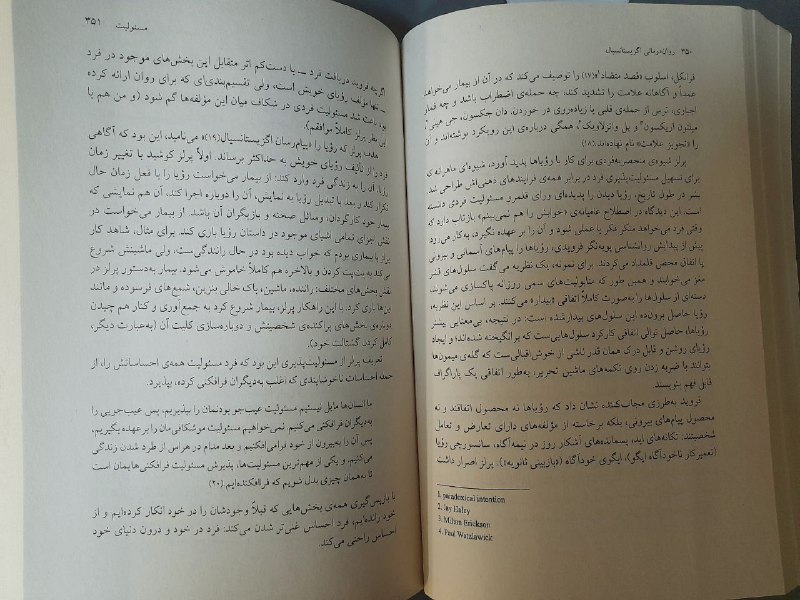 ۳۵۰ روان‌درمانی اگزیستانسیال
فرانکل، اسلوب «قصد متضاد»¹(۱۷) را توصیف می‌کند که در آن از بیمار می‌خواهد
عمداً و آگاهانه علامت را تشدید کند، چه حمله‌ی اضطراب باشد و چه قمار
اجباری، ترس از حمله‌ی قلبی یا زیاده‌روی در خوردن. دان جکسون، جی هیلی²،
میلتون اریکسون³ و پل واتزلاویک⁴، همگی درباره‌ی این رویکرد نوشته‌اند و آن
را «تجویز علامت» نام نهاده‌اند.(۱۸)
پرلز شیوه‌ی منحصربه‌فردی برای کار با رؤیاها پدید آورد، شیوه‌ای ماهرانه که
برای تسهیل مسئولیت‌پذیری فرد در برابر همه‌ی فرایندهای ذهنی‌اش طراحی شد.
بشر در طول تاریخ، رؤیا دیدن را پدیده‌ای ورای قلمرو مسئولیت فردی دانسته
است. این دیدگاه در اصطلاح عامیانه‌ی «خوابش را هم نمی‌بینم» بازتاب دارد که
وقتی فرد می‌خواهد منکر فکر یا عملی شود و آن را بر عهده نگیرد، به کار می‌رود.
پیش از پیدایش روانشناسی پویه‌نگر فرویدی، رؤیاها را پیام‌های آسمانی و بیرونی
یا اتفاق محض قلمداد می‌کردند. برای نمونه، یک نظریه می‌گفت سلول‌های قشر
مغز می‌خوابند و همین طور که متابولیت‌های سمی روزانه پاکسازی می‌شوند،
دسته‌ای از سلول‌ها به‌صورت کاملاً اتفاقی «بیدار» می‌کنند. بر اساس این نظریه،
رؤیا حاصل برون‌ده این سلول‌های بیدارشده است: در نتیجه، بی‌معنایی بیشتر
رؤیاها، حاصل توالی اتفاقی کارکرد سلول‌هایی‌ست که برانگیخته شده‌اند؛ و ایجاد
رؤیای روشن و قابل درک همان قدر ناشی از خوش‌اقبالی‌ست که گله‌ی میمون‌ها
بتوانند با ضربه زدن روی تکمه‌های ماشین تحریر، به‌طور اتفاقی یک پاراگراف
قابل فهم بنویسند.
فروید به‌طرزی مجاب‌کننده نشان داد که رؤیاها نه محصول اتفاقند و نه
محصول پیام‌های بیرونی، بلکه برخاسته از مؤلفه‌های دارای تعارض و تعامل
شخصیتند: تکانه‌های اید، پسمانده‌های آشکار روز در نیمه‌آگاه، سانسورچی رؤیا
(تعمیرکار ناخودآگاه ایگو)، ایگوی خودآگاه («بازبینی ثانویه»). پرلز اصرار داشت
1. paradoxical intention
2. Jay Haley
3. Milton Erickson
4. Paul Watzlawick
مسئولیت ۳۵۱
اگرچه فروید دریافت فرد — یا دست‌کم اثر متقابل این بخش‌های موجود در فرد
— تنها مؤلف رؤیای خویش است، ولی تقسیم‌بندی‌ای که برای روان ارائه کرده
بود، باعث شد مسئولیت فردی در شکاف میان این مؤلفه‌ها گم شود (و من هم با
این نظر پرلز کاملاً موافقم).
هدف پرلز که رؤیا را «پیام‌رسان اگزیستانسیال»(۱۹) می‌نامید، این بود که آگاهی
فرد را از تألیف رؤیای خویش به حداکثر برساند. اولاً پرلز کوشید با تغییر زمان
رؤیا آن را به زندگی فرد وارد کند: از بیمار می‌خواست رؤیا را با فعل زمان حال
تکرار کند و بعد با تبدیل رؤیا به نمایش، آن را دوباره اجرا کند، آن هم نمایشی که
بیمار خود کارگردان، وسائل صحنه و بازیگران آن باشد. از بیمار می‌خواست در
نقش اجزای تمامی اشیای موجود در داستان رؤیا بازی کند. برای مثال، شاهد کار
پرلز با بیماری بودم که خواب دیده بود در حال رانندگی‌ست، ولی ماشینش شروع
می‌کند به پت‌پت کردن و بالاخره هم کاملاً خاموش می‌شود. بیمار به‌دستور پرلز در
نقش بخش‌های مختلف: راننده، ماشین، باک خالی بنزین، شمع‌های فرسوده و مانند
این‌ها بازی کرد. با این راهکار پرلز، بیمار شروع کرد به جمع‌آوری و کنار هم چیدن
دوباره‌ی بخش‌های پراکنده‌ی شخصیتش و دوباره‌سازی کلیت آن (به‌عبارت دیگر،
کامل کردن گشتالت خود).
تعریف پرلز از مسئولیت‌پذیری این بود که فرد مسئولیت همه‌ی احساساتش را، از
جمله احساسات ناخوشایندی که اغلب به‌دیگران فرافکنی کرده، بپذیرد.
ما انسان‌ها مایل نیستیم مسئولیت عیب‌جو بودنمان را بپذیریم، پس عیب‌جویی را
به‌دیگران فرافکنی می‌کنیم. نمی‌خواهیم مسئولیت موشکافی‌مان را بر عهده بگیریم،
پس آن را به‌بیرون از خود فرامی‌افکنیم و بعد مدام در هراس از طرد شدن زندگی
می‌کنیم. و یکی از مهم‌ترین مسئولیت‌ها، پذیرش مسئولیت فرافکنی‌هایمان است
تا به‌همان چیزی بدل شویم که فرافکنده‌ایم.(۲۰)
با بازپس‌گیری همه‌ی بخش‌هایی که قبلاً وجودشان را در خود انکار کرده‌ایم و از
خود رانده‌ایم، فرد احساس غنی‌تر شدن می‌کند: فرد در خود و درون دنیای خود
احساس راحتی می‌کند.